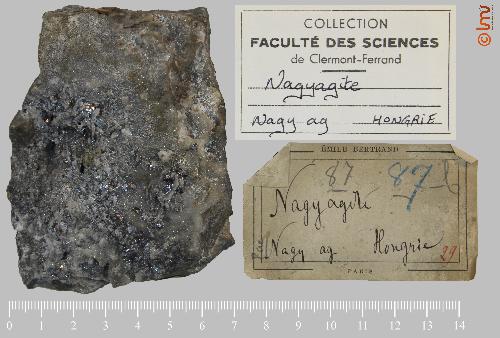 COLLECTION
FACULTÉ DES SCIENCES
de Clermont-Ferrand
Nagyagite
Nagy ag HONGRIE
ÉMILE BERTRAND
87 87
Nagyagite
Nagy ag Hongrie
29
PARIS
0 1 2 3 4 5 6 7 8 9 10 11 12 13 14
© lmv